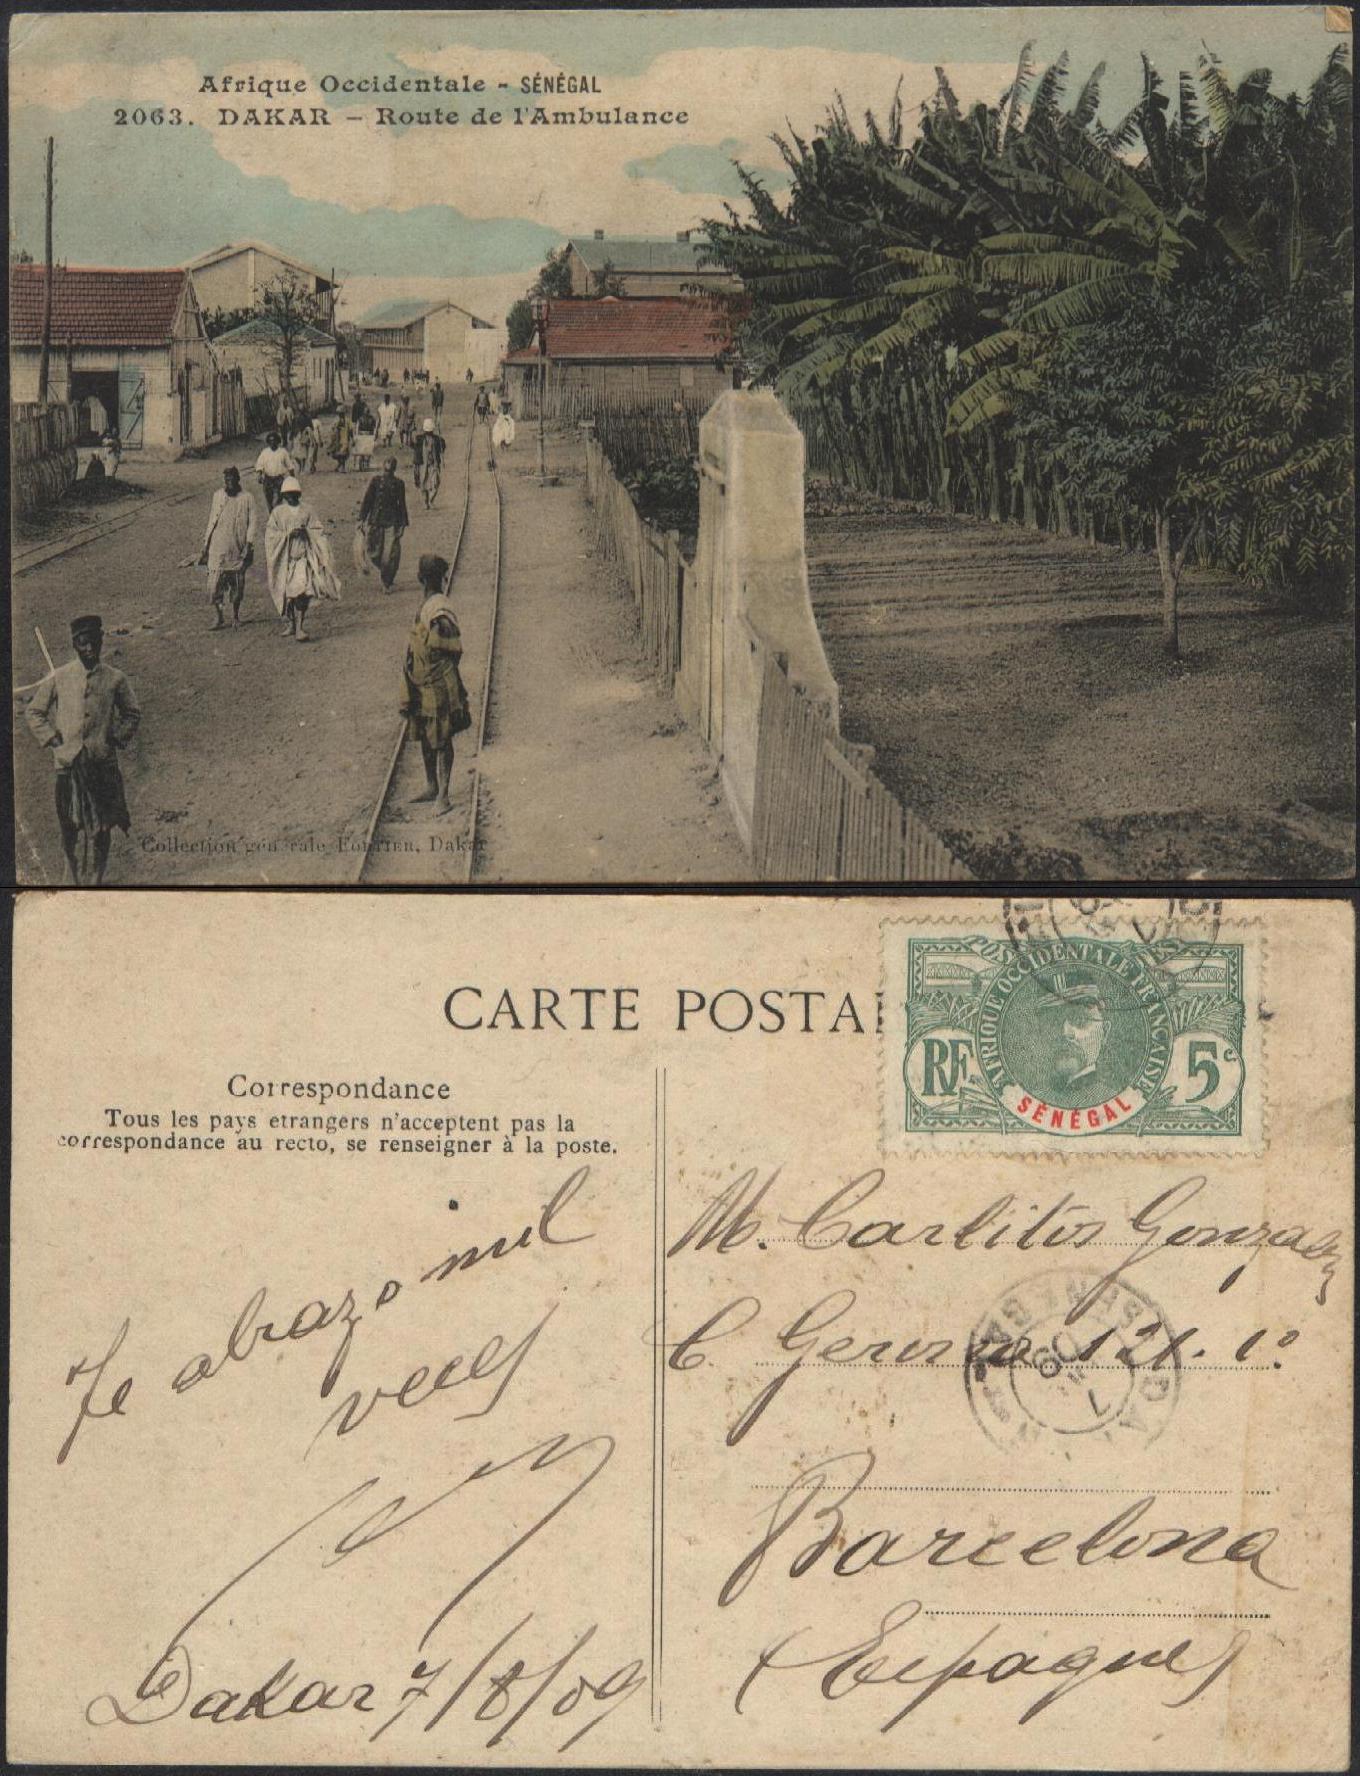 Afrique Occidentale - SÉNÉGAL
2063. DAKAR - Route de l'Ambulance
Collection générale FORTIER, Dakar
CARTE POSTA
Correspondance
Tous les pays etrangers n'acceptent pas la
correspondance au recto, se renseigner à la poste.
POSTES
AFRIQUE OCCIDENTALE FRANÇAISE
RF
5c
SÉNÉGAL
Te abrazo mil
veces
Dakar 7/8/09
M. Carlitos Gonzalez
C. Gerona 121. 1º
09
7
Barcelona
(Espagne)